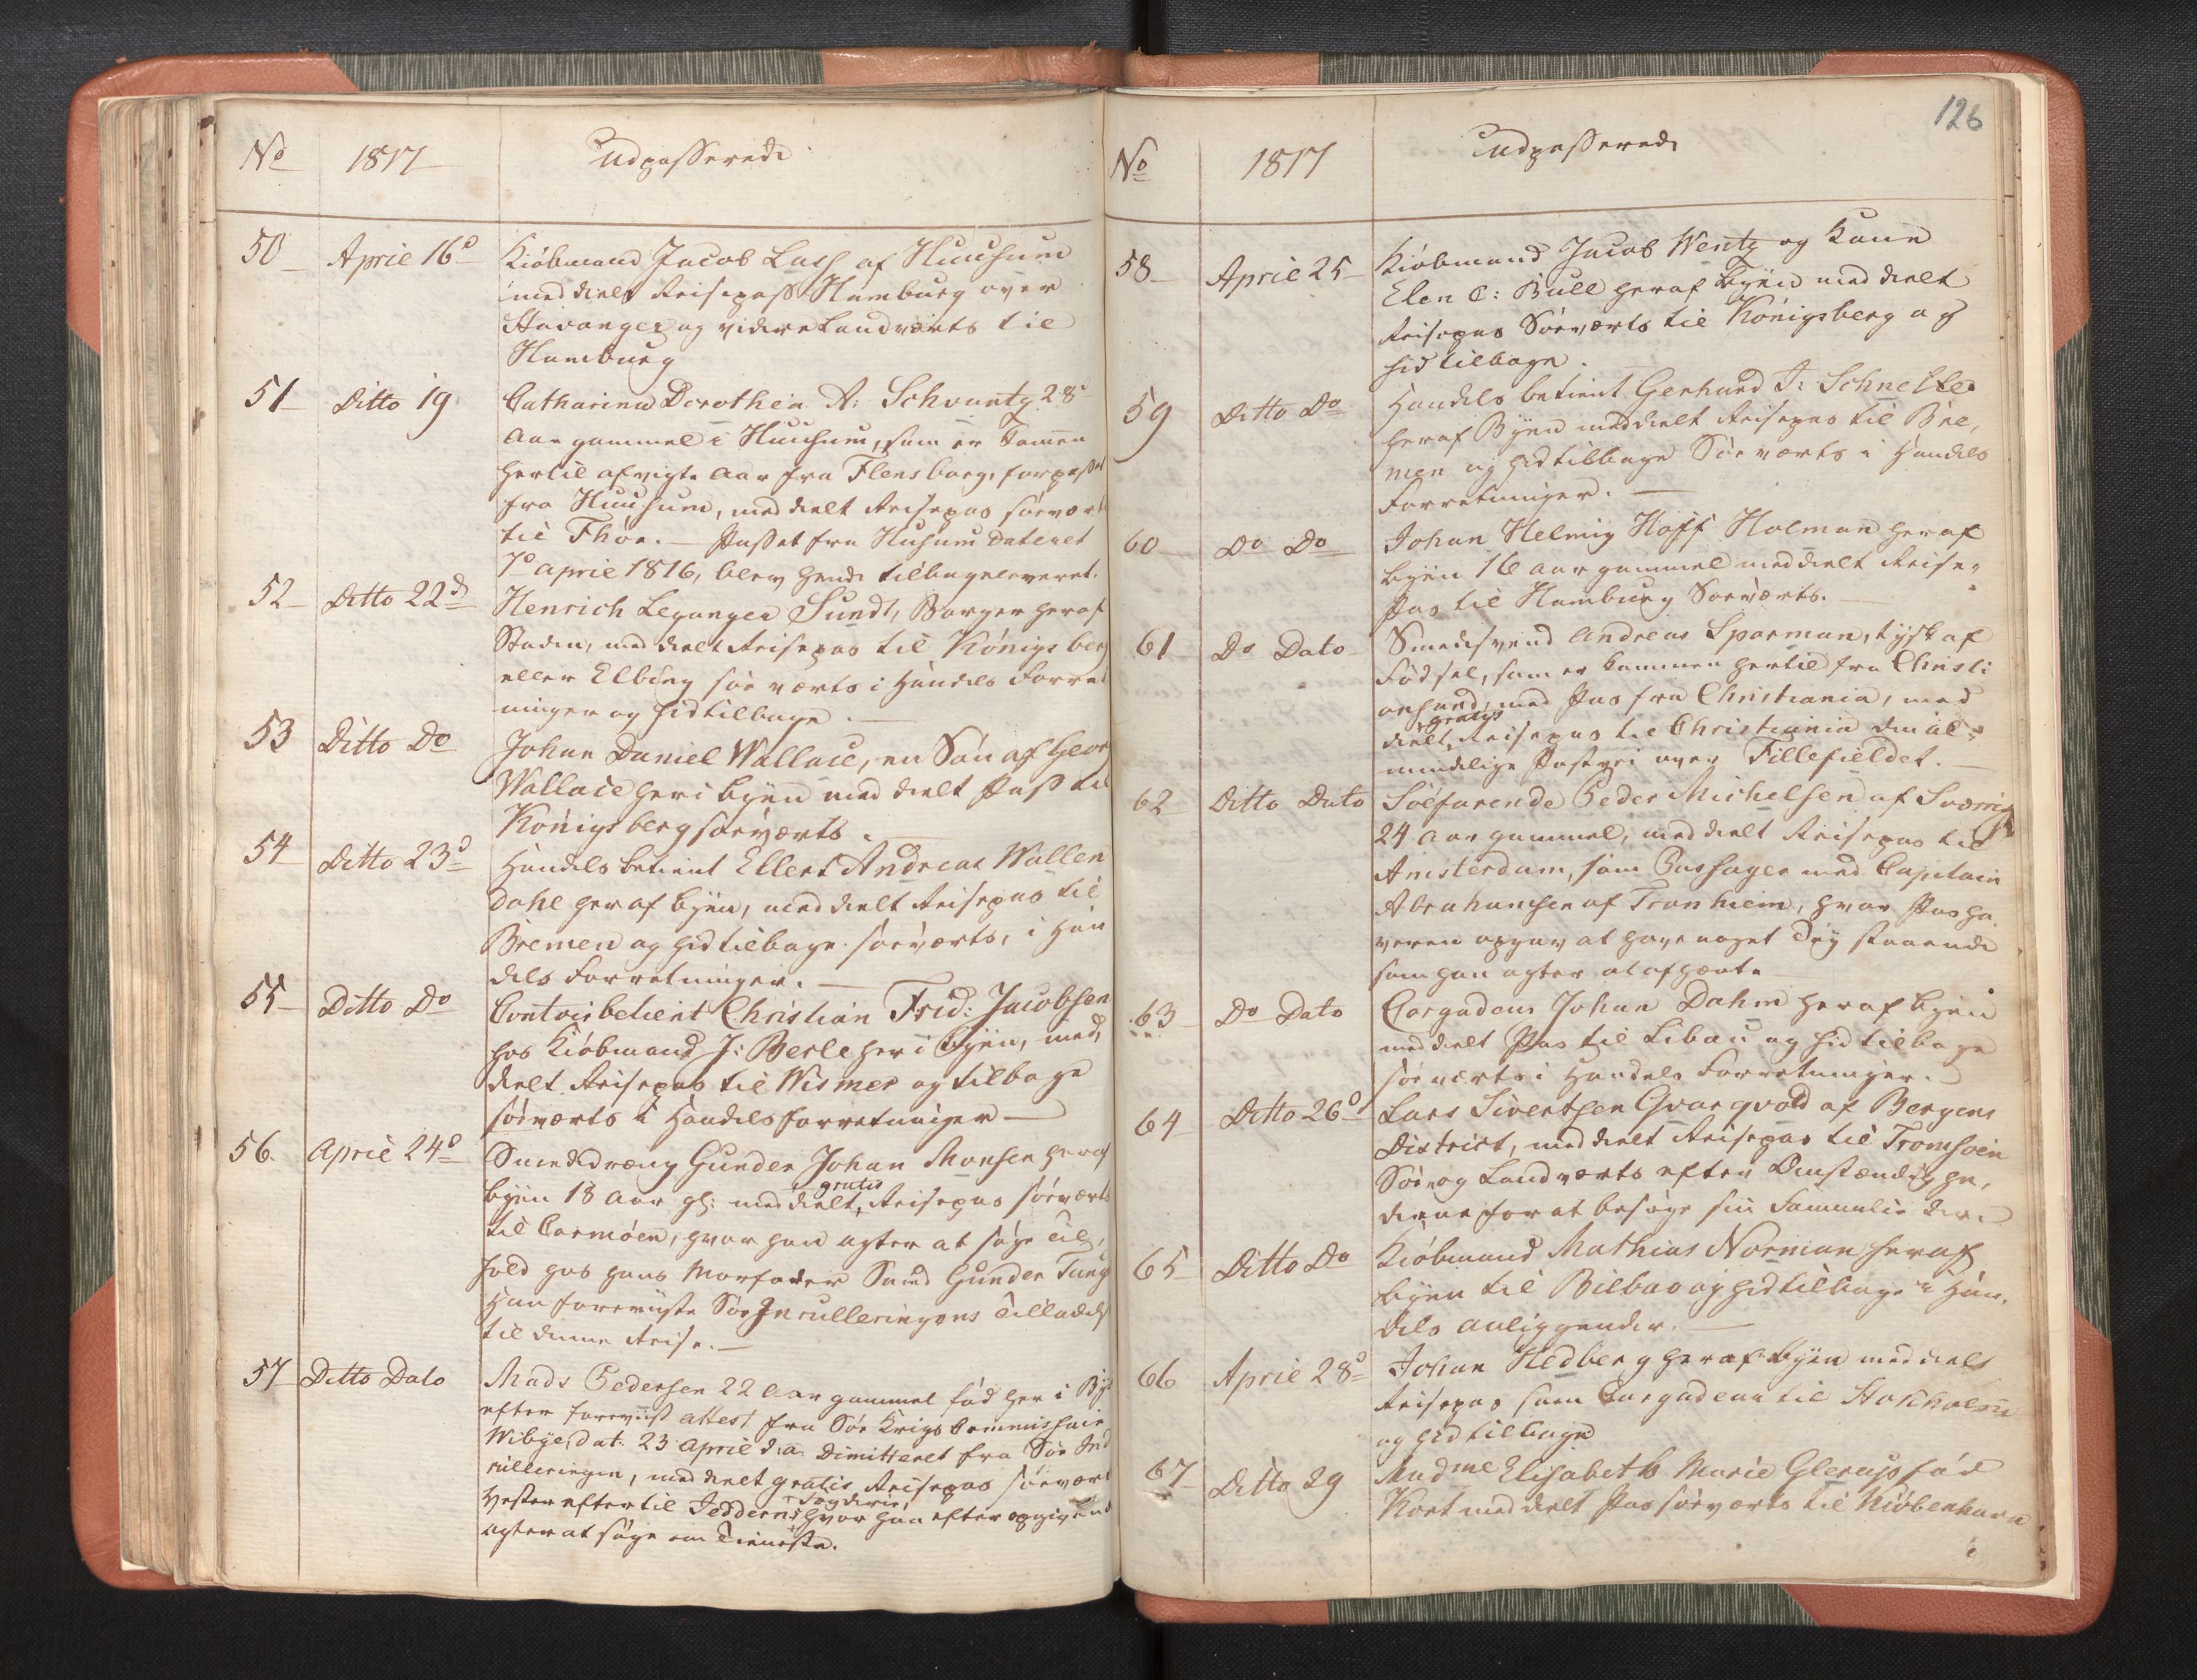 No 1817 Udpasserede
50 April 16d Kiöbmand Jacob Lass af Huusum
meddelt Reisepass Hamburg over
Stavanger og videre Landværts til
Hamburg
51 Ditto 19 Catharina Dorothea A: Schvantz 28
Aar gammel i Huusum, som er kommen
hertil afvigte Aar fra Flensborg, forpasset
fra Huusum, meddelt Reisepas söeværts
til Fhöe. – Passet fra Husum dateret
7d April 1816, blev hende tilbageleveret.
52 Ditto 22d Henrich Leganger Sundt, Borger heraf
Staden, meddelt Reisepas til Königsberg
eller Elbing söeværts i Handels Forret
ninger og hidtilbage. –
53 Ditto Do Johan Daniel Wallace, en Sön af Georg
Wallace her i Byen meddelt Pass til
Königsberg söeværts. –
54 Ditto 23d Handelsbetient Ellert Andreas Wallen
dahl heraf Byen, meddelt Reisepas til
Bremen og hidtilbage söeværts, i Han
dels Forretninger. –
55 Ditto Do Contoirbetient Christian Frid: Jacobsen
hos Kiöbmand J: Berle her i Byen, med,
delt Reisepas til Wismer og tilbage
söeværts i Handelsforretninger –
56. April 24d Smededreng Gunder Johan Monsen heraf
Byen 18 Aar gl: meddelt gratis Reisepas söeværts
til Carmöen, hvor han agter at söge Til,
hold hos hans Morfader Smed Gunder Tung
Han foreviiste Söe Inrulleringens Tilladelse
til denne Reise. –
57 Ditto Dato Mads Pedersen 22 Aar gammel föd her i Bye
efter foreviist Attest fra Söe Krigs Commissair
Wibye, dat: 23 April d: a: Dimitteret fra Söe Ind
rulleringen, meddelt gratis Reisepas söeværts
Vester efter til Jedderns Fogderie, hvor han efter opgivende
agter at söge om Tieneste.
126
No 1817 Udpasserede
58 April 25 Kiöbmand Jacob Wentz og Kone
Elen C: Bull heraf Byen meddelt
Reisepas Söeværts til Königsberg og
hidtilbage.
59 Ditto Do Handelsbetient Gerhard J: Schnelle
heraf Byen meddelt Reisepas til Bre,
men og hidtilbage Söeværts i Handels
Forretninger. –
60 Do Do Johan Helmig Hoff Holman heraf
Byen 16 Aar gammel meddelt Reise-
Pas til Hamburg Söeværts. –
61 Do Dato Smedesvend Andreas Sparman, tydsk af
Födsel, som er kommen hertil fra Christi
ansand, med Pas fra Christiania, med
delt gratis Reisepas til Christiania den al-
mindelige Postvei over Fillefieldet. –
62 Ditto Dato Söefarende Peder Michelsen af Sverrig
24 Aar gammel, meddelt Reisepas til
Amsterdam, som Passager med Capitain
Abrahamsen af Tronhiem, hvor Pasha
veren opgav at have noget Töy staaende
som han agter at afhente
63 Do Dato Cargadeur Johan Dahm heraf Byen
meddelt Pas til Libau og hidtilbage
söeværts i Handels Forretninger.
64 Ditto 26d Lars Sivertsen Gvarqvold af Bergens
District, meddelt Reisepas til Tromsöen
Söe og Landværts efter Omstændighe,
derne for at besöge sin Familie der.
65 Ditto Do Kiöbmand Mathias Norman heraf
Byen til Bilbao og hidtilbage i Han,
dels anliggender. –
66 April 28d Johan Hedberg heraf Byen meddelt
Reisepas som Cargadeur til Stokholm
og hidtilbage
67 Ditto 29 Madme Elisabeth Marie Glerup föd
Kort meddelt Pas söeværts til Kiöbenhavn